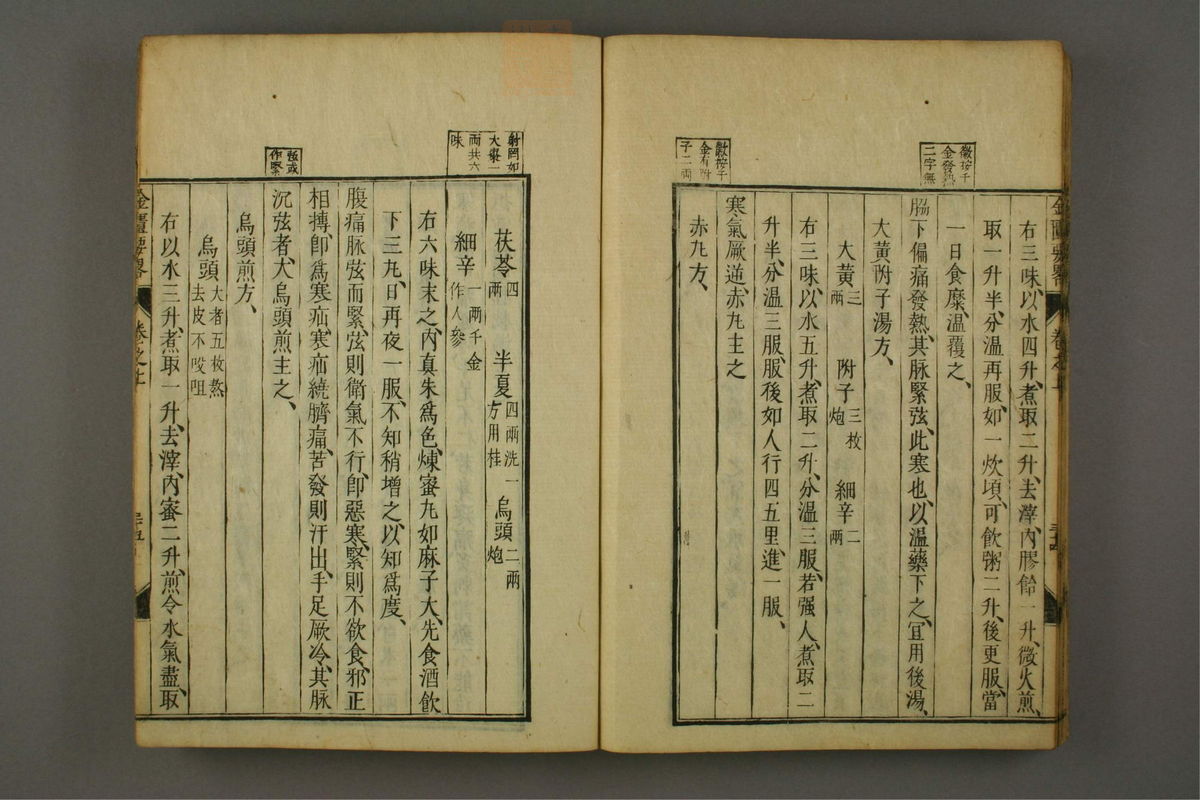 徽按千
金發熱
二字無
數按千
金有附
子二両
金匱要畧
卷之上
三十四
右三味、以水四升、煮取二升、去滓、內膠飴一升、微火煎、
取一升半、分溫再服、如一炊頃、可飲粥二升、後更服、當
一日食糜、溫覆之、
脇下偏痛發熱、其脉緊弦、此寒也、以溫藥下之、宜用後湯、
大黃附子湯方、
大黃三両 附子三枚炮 細辛二両
右三味、以水五升、煮取二升、分溫三服、若强人、煮取二
升半、分溫三服、服後如人行四五里、進一服、
寒氣厥逆、赤丸主之
赤丸方、
射罔如
大棗一
両共六
味
弦或
作緊
茯苓四両 半夏四両洗一方用桂 烏頭二両炮
細辛一両千金作人參
右六味末之、內真朱爲色、煉蜜丸如麻子大、先食酒飮
下三丸、日再夜一服、不知稍增之、以知爲度、
腹痛脉弦而緊、弦則衛氣不行、卽惡寒、緊則不欲食、邪正
相搏、卽爲寒疝、寒疝繞臍痛、苦發則汗出、手足厥冷、其脉
沉弦者、大烏頭煎主之、
烏頭煎方、
烏頭大者五枚熬去皮不㕮咀
右以水三升、煮取一升、去滓、內蜜二升、煎令水氣盡、取
金匱要畧
卷之上
三十五